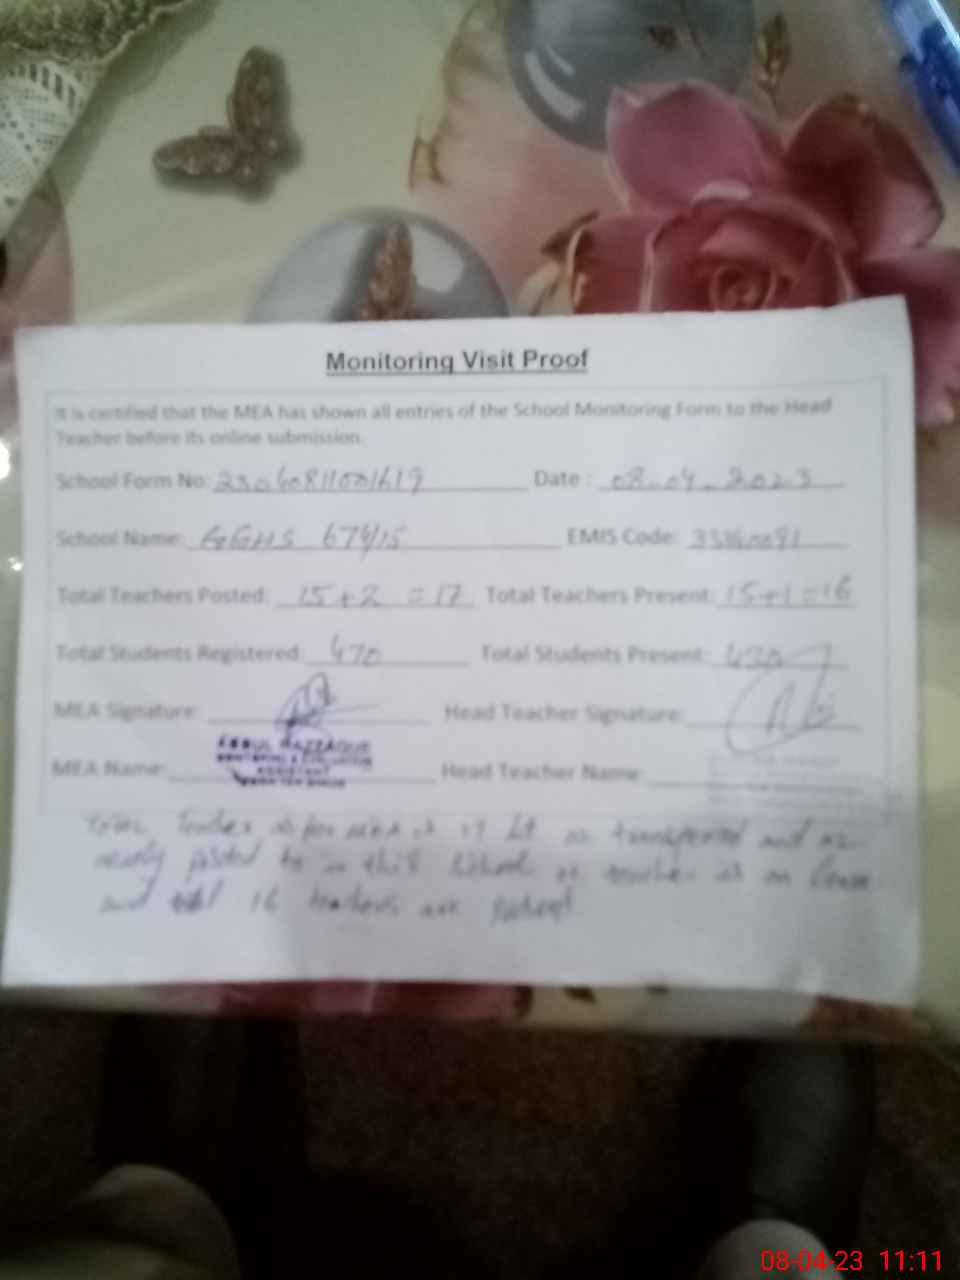 Monitoring Visit Proof
It is certified that the MEA has shown all entries of the School Monitoring Form to the Head
Teacher before its online submission.
School Form No: Date: 08-04-2023
School Name: GGHS EMIS Code:
Total Teachers Posted: 15+2 = 17 Total Teachers Present: 15+1=16
Total Students Registered: 470 Total Students Present: 430
MEA Signature: Head Teacher Signature:
ABDUL RAZZAQUE
MONITORING & EVALUATION
ASSISTANT
MEA Name: Head Teacher Name:
Teacher as per MEA is 17 transferred and
newly posted in this School teacher is on leave
and 16 teachers are
08-04-23 11:11